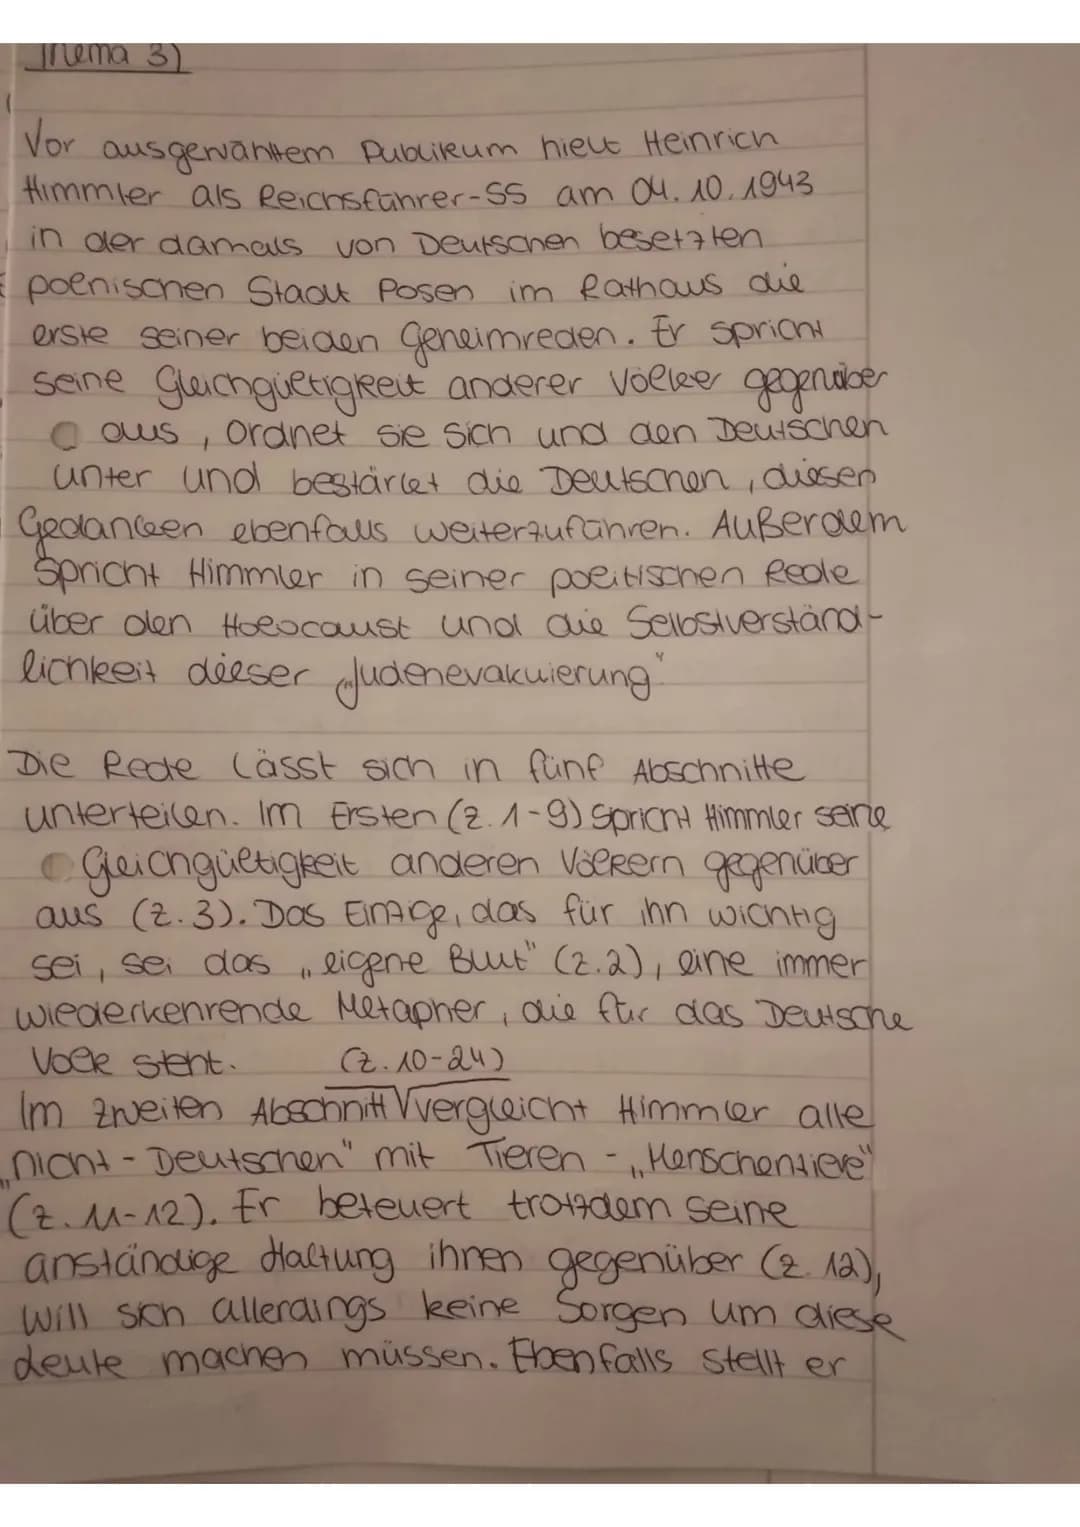 Thema 3)
Vor ausgewähltem Publikum hielt Heinrich
Himmler als Reichsführer-SS am 04.10.1943
in der damals von Deutschen besetzten
polnischen Stadt Posen im Rathaus die
erste seiner beiden Geheimreden. Er spricht
seine Gleichgültigkeit anderer Völker gegenüber
aus, ordnet sie sich und den Deutschen
unter und bestärket die Deutschen, diesen
Gedanken ebenfalls weiterzuführen. Außerdem
spricht Himmler in seiner politischen Rede
über den Holocaust und die Selbstverständ-
lichkeit dieser „Judenevakuierung".
Die Rede lässt sich in fünf Abschnitte
unterteilen. Im Ersten (Z. 1-9) spricht Himmler seine
Gleichgültigkeit anderen Völkern gegenüber
aus (Z. 3). Das Einzige, das für ihn wichtig
sei, sei das „eigene Blut" (Z.2), eine immer
wiederkehrende Metapher, die für das Deutsche
Volk steht.
(Z. 10-24)
Im zweiten Abschnitt vergleicht Himmler alle
„nicht-Deutschen" mit Tieren - „Menschentiere"
(Z. 11-12). Er beteuert trotzdem seine
anständige Haltung ihnen gegenüber (Z. 12),
will sich allerdings keine Sorgen um diese
Leute machen müssen. Ebenfalls stellt er